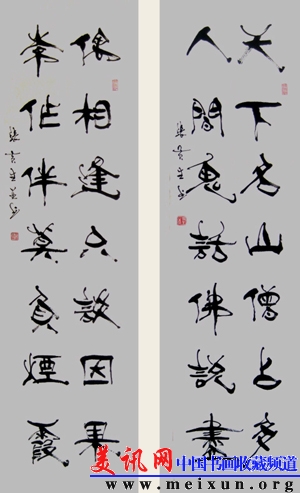 天下名山僧占多
人間話佛說盡
偶相逢只談因果
常作伴莫負煙霞
美讯网 中国书画收藏频道
www.meixun.org